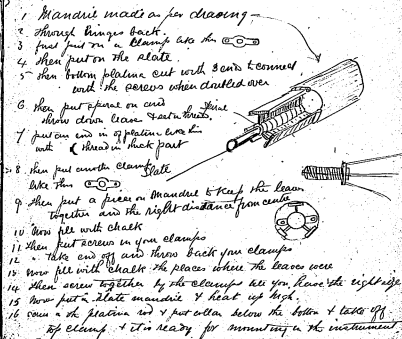 1 Mandril made as per drawing
2 Through hinges back.
3 first put on a Clamp like this
4 then put on the slate.
5 then bottom platina cut with 3 ends to connect
with the screws when doubled over
6 then put spiral on and
throw down leave & set in threads
Spiral
7 put on end of platina like this
with thread in thick part
8 then put another clamp
Slate
like this
9 then put a piece on Mandril to keep the leaves
together and the right distance from centre
10 Now fill with chalk
11 Then put screws in your clamps
12 " take end off and throw back your clamps
13 Now fill with chalk the places where the leaves were
14 Then screw together by the clamps till you have the right size
15 Now put in slate mandril & heat up high.
16 screw in the platina rod & put collar below the bottom & take off
top clamp & it is ready for mounting in the instrument